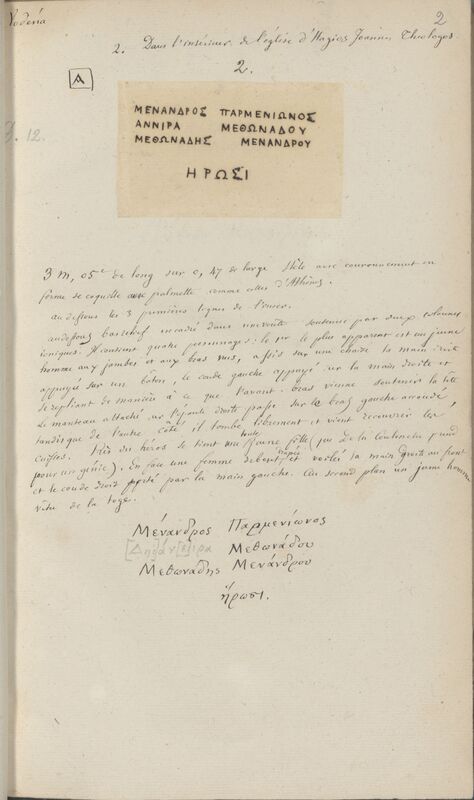 Vodena
2
2. Dans l'intérieur de l'église d'Hagios Joannis Theologos.
2.
A
12.
ΜΕΝΑΝΔΡΟΣ ΠΑΡΜΕΝΙΩΝΟΣ
ΑΝΝΙΡΑ ΜΕΘΩΝΑΔΟΥ
ΜΕΘΩΝΑΔΗΣ ΜΕΝΑΝΔΡΟΥ
ΗΡΩΣΙ
3 m, 05 de long sur 0, 47 de large Stèle avec couronnement en
forme de coquille avec palmette comme celles d'Athènes.
au dessous les 3 premières lignes de l'inscr.
audessous basrelief encadré dans une voute soutenue par deux colonnes
ioniques. Il contient quatre personnages. le 1er le plus apparent est un jeune
homme aux jambes et aux bras nus, assis sur une chaise la main droite
appuyée sur un bâton, le coude gauche appuyé sur la main droite et
se repliant de manière à ce que l'avant-bras vienne soutenir la tête
Le manteau attaché sur l'épaule droite passe sur le bras gauche arrondi,
tandisque de l'autre côté il tombe librement et vient recouvrir les
cuisses. Près du héros se tient une toute jeune fille
pour un génie). En face une femme debout, drapée et voilée sa main droite au front
et le coude droit par la main gauche. Au second plan un jeune homme
vêtu de la toge.
Μένανδρος Παρμενίωνος
[Δηϊάν[ε]ιρα Μεθωνάδου
Μεθωνάδης Μενάνδρου
ἥρωσι.